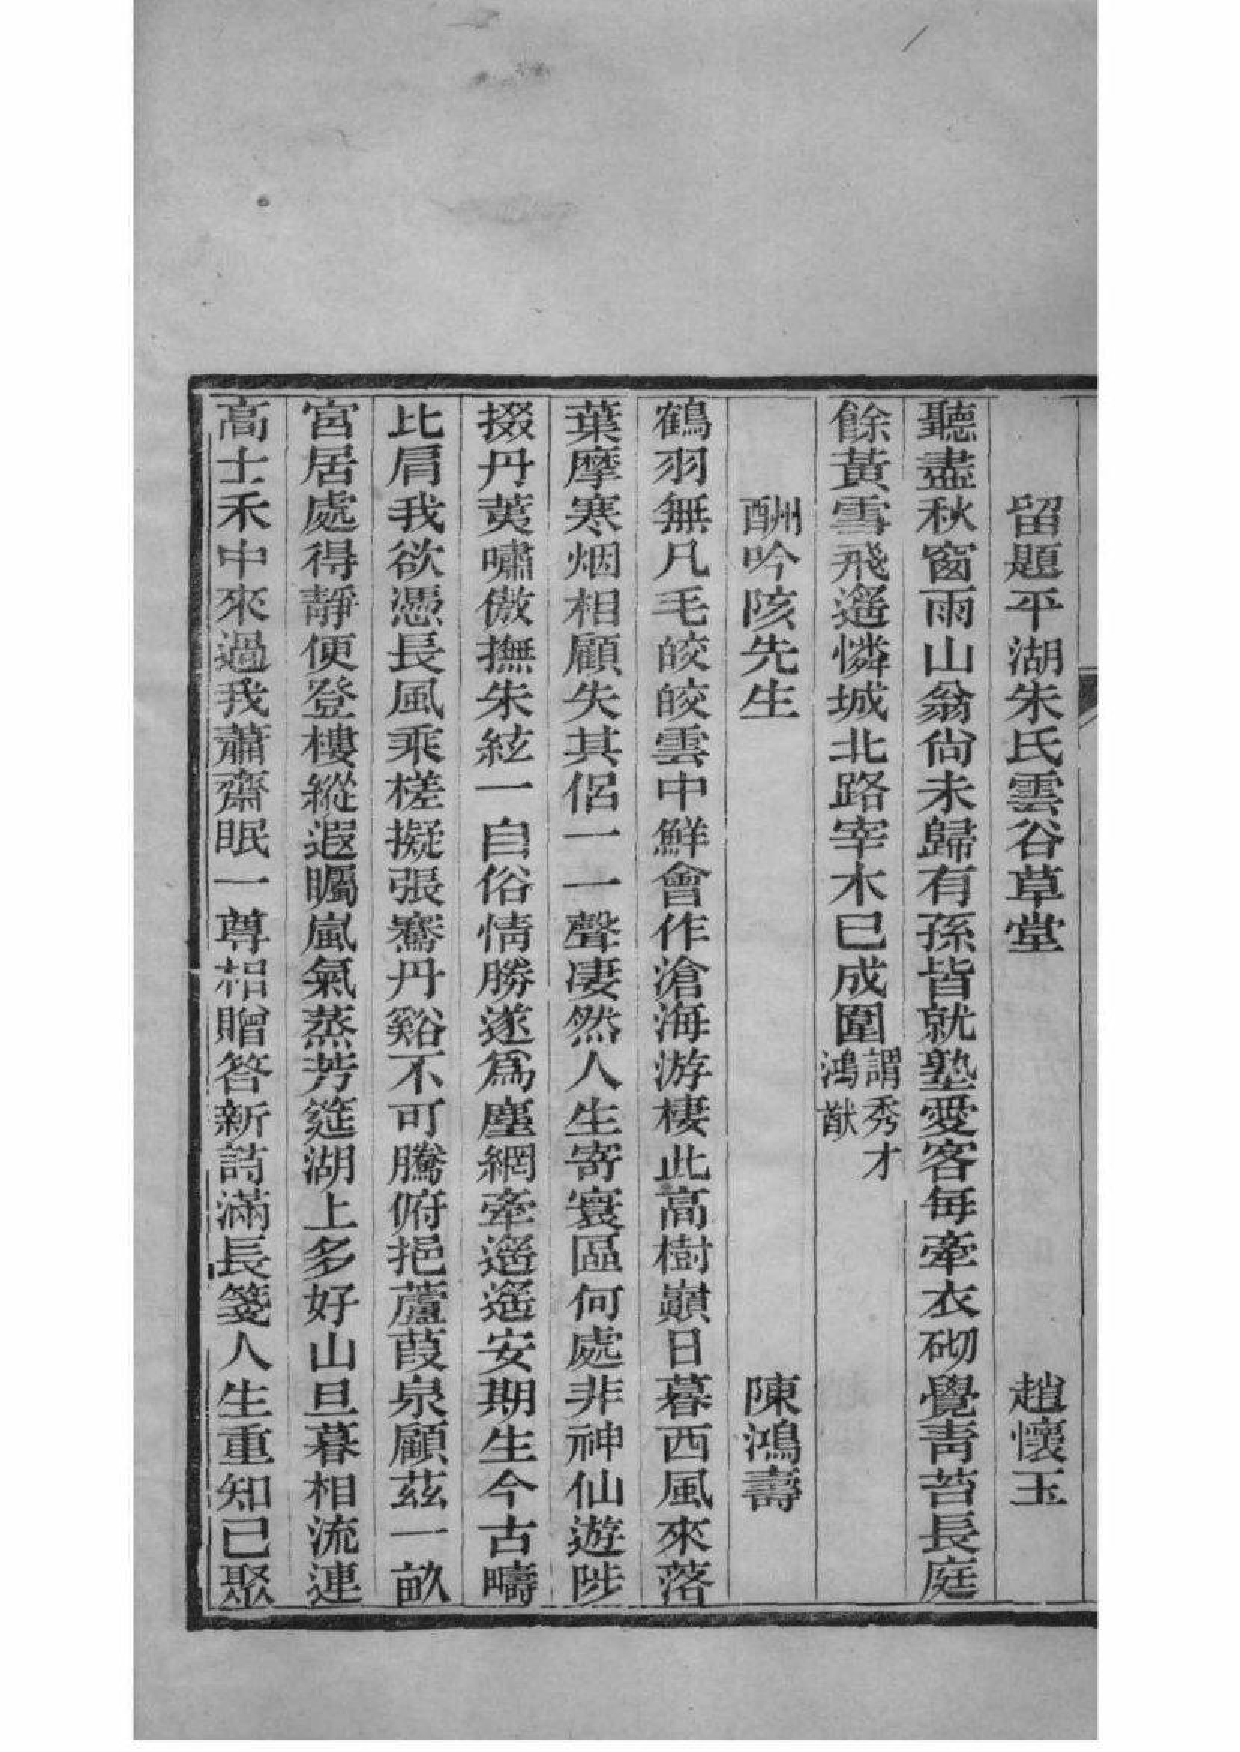 留題平湖朱氏雲谷草堂　趙懷玉
聽盡秋窗雨山翁尙未歸有孫皆就塾愛客每牽衣砌覺靑苔長庭
餘黃雪飛遥憐城北路宰木已成圍謂秀才鴻猷
酬吟陔先生　陳鴻壽
鶴羽無凡毛皎皎雲中鮮會作滄海游棲此高樹巔日暮西風來落
葉摩寒烟相顧失其侶一一聲凄然人生寄寰區何處非神仙遊陟
掇丹荑嘯傲撫朱絃一自俗情勝遂爲塵網牽遥遥安期生今古疇
比肩我欲憑長風乘槎擬張騫丹谿不可騰俯挹蘆葭泉顧茲一畝
宮居處得靜便登樓縱遐矚嵐氣蒸芳筵湖上多好山旦暮相流連
高士禾中來過我蕭齋眠一尊相贈答新詩滿長箋人生重知己聚